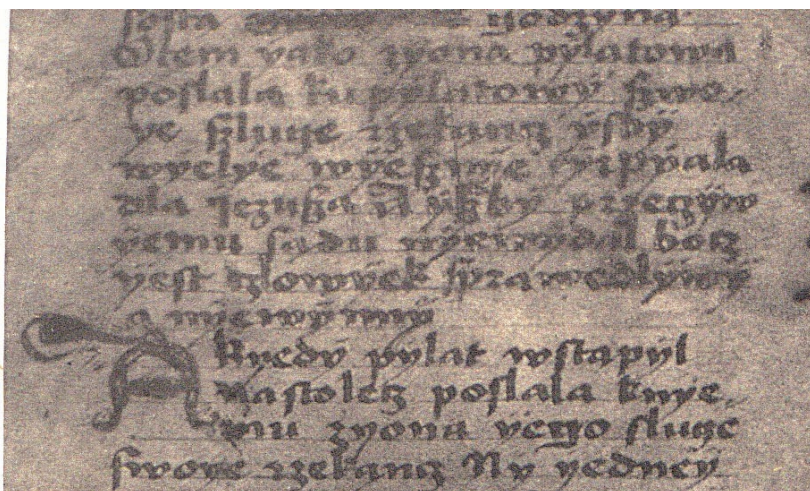 szosta godzyna
O tem yako zyona pylatowa
poslala ku pylatowy szwo-
ye szluge rzekancz ysby
wyelye wyeszwye cyrpyala
dla iezusza A yszby przecyw
yemu sadu nye wydal bocz
yest czlowyek sprawedlywy
a nyewynny
A Kyedy pylat wstapyl
na stolecz poslala knye-
mu zyona yego sluge
swoye rzekancz Ny yedney